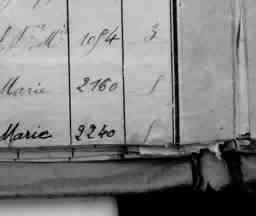 1054 3
Marie 2160 1
Marie 2240 1